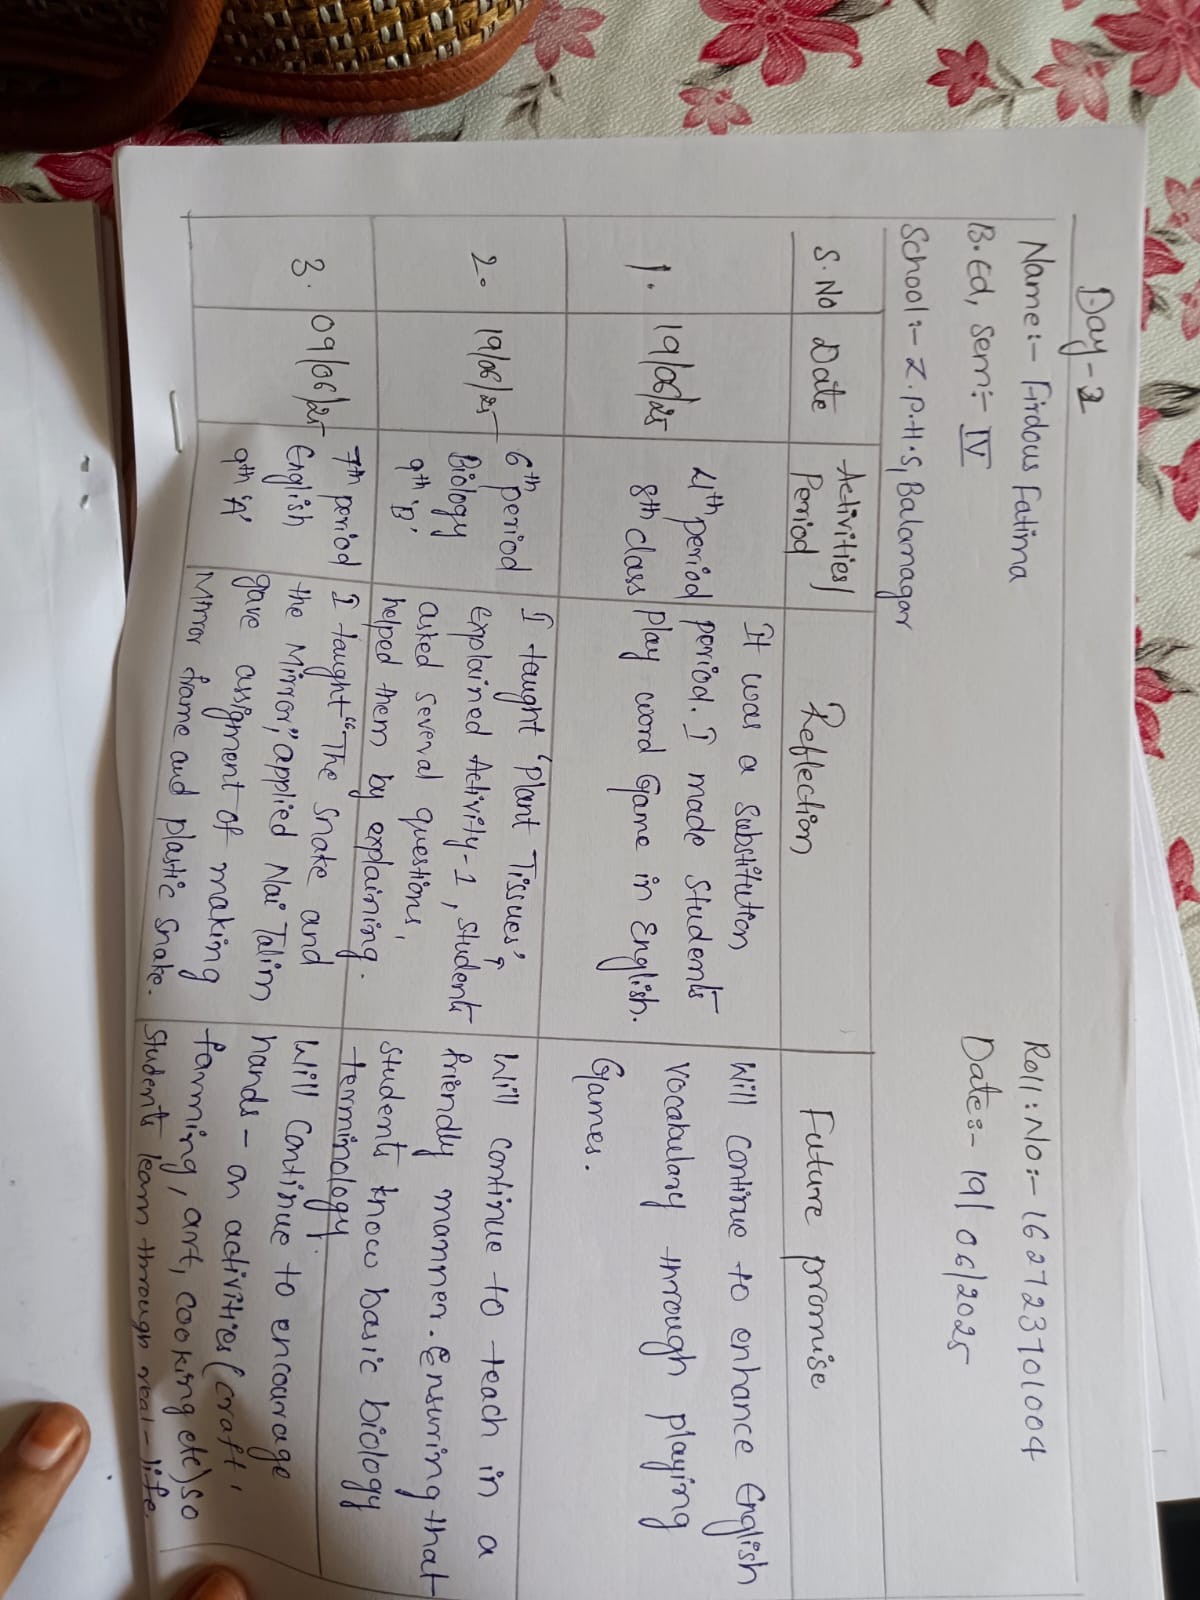 Day-2
Name:- Firdous Fatima
Roll:No:- 162723701004
B.Ed, Sem:- IV
Date:- 19/06/2025
School:- Z.P.H.S, Balanagar
S.No
Date
Activities/
Period
Reflection
Future promise
1.
19/06/25
4th period
8th class
It was a substitution
period. I made students
play word Game in English.
Will continue to enhance English
vocabulary through playing
Games.
2.
19/06/25
6th period
Biology
9th 'B'
I taught 'Plant Tissues',
explained Activity-1, students
asked several questions,
helped them by explaining.
Will continue to teach in a
friendly manner. Ensuring that
students know basic biology
terminology.
3.
09/06/25
7th period
English
9th 'A'
I taught "The Snake and
the Mirror", applied Nai Talim
gave assigment of making
Mirror frame and plastic Snake.
Will continue to encourage
hands-on activities (craft,
farming, art, cooking etc) so
students learn through real-life